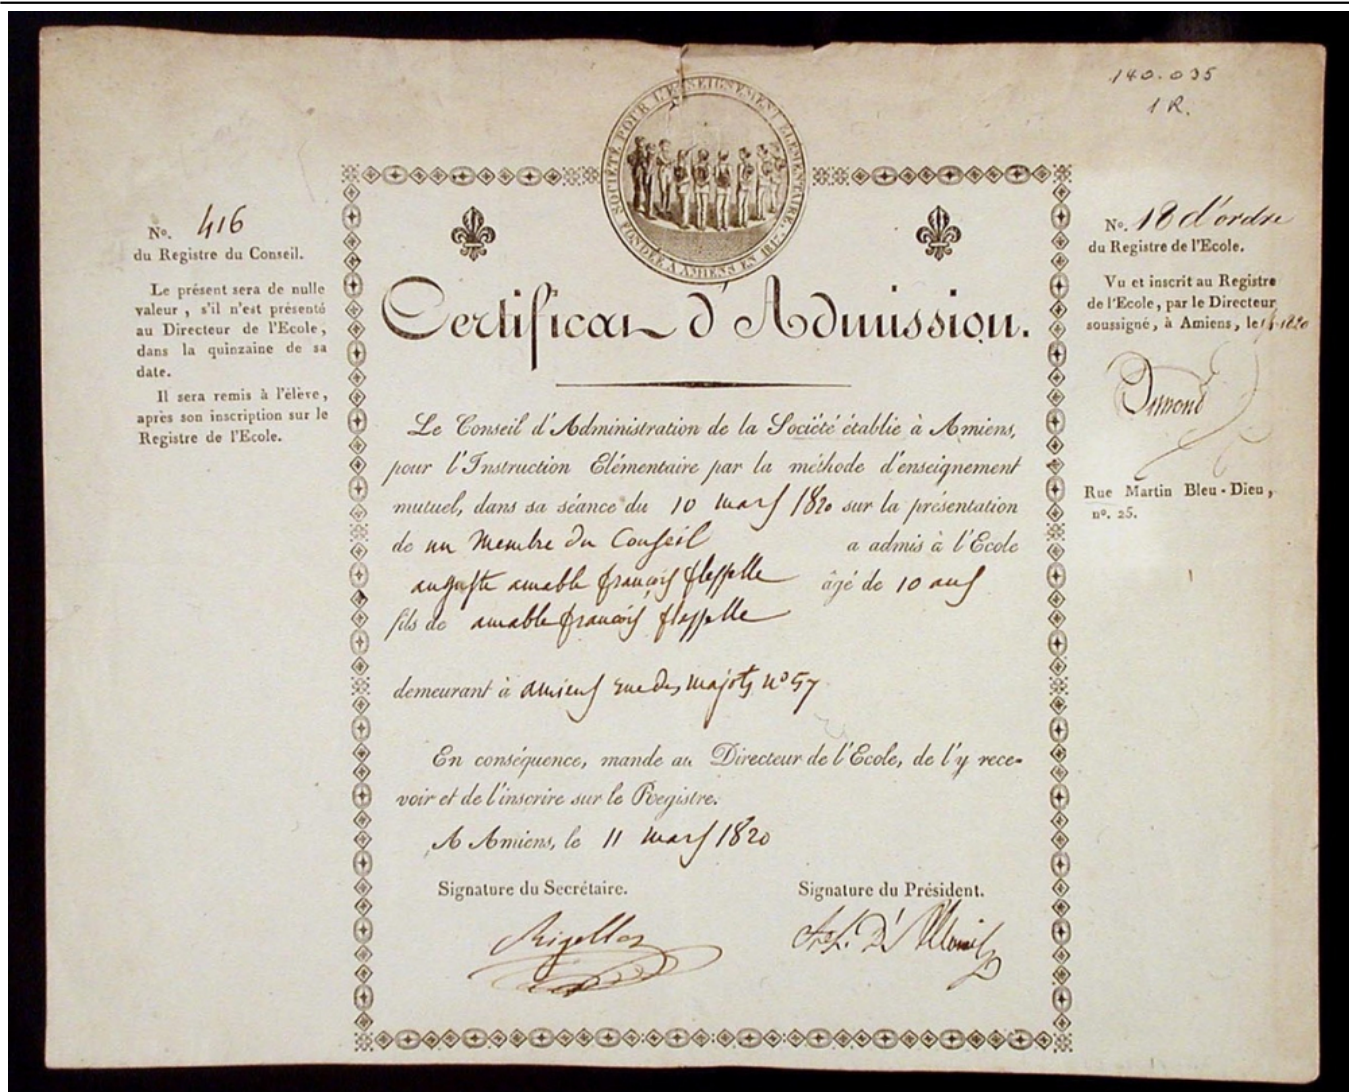 140.035
1 R.
SOCIÉTÉ POUR L'ENSEIGNEMENT ÉLÉMENTAIRE.
FONDÉE A AMIENS EN 1817.
No. 416
du Registre du Conseil.
Le présent sera de nulle
valeur, s'il n'est présenté
au Directeur de l'Ecole,
dans la quinzaine de sa
date.
Il sera remis à l'élève,
après son inscription sur le
Registre de l'Ecole.
Certificat d'Admission.
Le Conseil d'Administration de la Société établie à Amiens,
pour l'Instruction Elémentaire par la méthode d'enseignement
mutuel, dans sa séance du 10 mars 1820 sur la présentation
de un Membre du Conseil a admis à l'Ecole
auguste amable françois flesselle âgé de 10 ans
fils de amable françois flesselle
demeurant à amiens rue des majots n° 57
En conséquence, mande au Directeur de l'Ecole, de l'y rece-
voir et de l'inscrire sur le Registre.
A Amiens, le 11 mars 1820
Signature du Secrétaire. Signature du Président.
Rigollot
No. 18 d'ordre
du Registre de l'Ecole.
Vu et inscrit au Registre
de l'Ecole, par le Directeur
soussigné, à Amiens, le 1820
Rue Martin Bleu-Dieu,
no. 25.